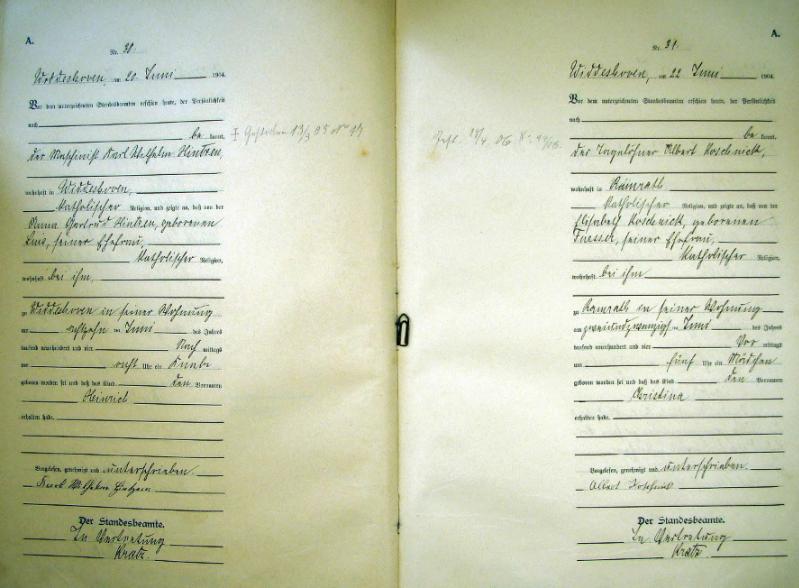 A.
Nr. 30.
Widdeshoven, am 20 Juni 1904.
Vor dem unterzeichneten Standesbeamten erschien heute, der Persönlichkeit
nach
be kannt,
der Maschinist Karl Wilhelm
wohnhaft in Widdeshoven,
katholischer Religion, und zeigte an, daß von der
Anna Gertrud geborenen
seiner Ehefrau,
katholischer Religion,
wohnhaft bei ihm,
zu Widdeshoven in seiner Wohnung
am achtzehn ten Juni des Jahres
tausend neunhundert und vier Nach mittags
um acht Uhr ein Knabe
geboren worden sei und daß das Kind den Vornamen
Heinrich
erhalten habe.
Vorgelesen, genehmigt und unterschrieben
Wilhelm
Der Standesbeamte.
In Vertretung
Kratz.
Gestorben 13/3 05 No
A.
Nr. 31.
Widdeshoven, am 22 Juni 1904.
Vor dem unterzeichneten Standesbeamten erschien heute, der Persönlichkeit
nach
be kannt,
der Tagelöhner Albert Koschnick,
wohnhaft in Ramrath
katholischer Religion, und zeigte an, daß von der
Elisabeth Koschnick, geborenen
seiner Ehefrau,
katholischer Religion,
wohnhaft bei ihm
zu Ramrath in seiner Wohnung
am zweiundzwanzigsten Juni des Jahres
tausend neunhundert und vier Vor mittags
um fünf Uhr ein Mädchen
geboren worden sei und daß das Kind den Vornamen
Christina
erhalten habe.
Vorgelesen, genehmigt und unterschrieben
Albert Koschnick
Der Standesbeamte.
In Vertretung
Kratz.